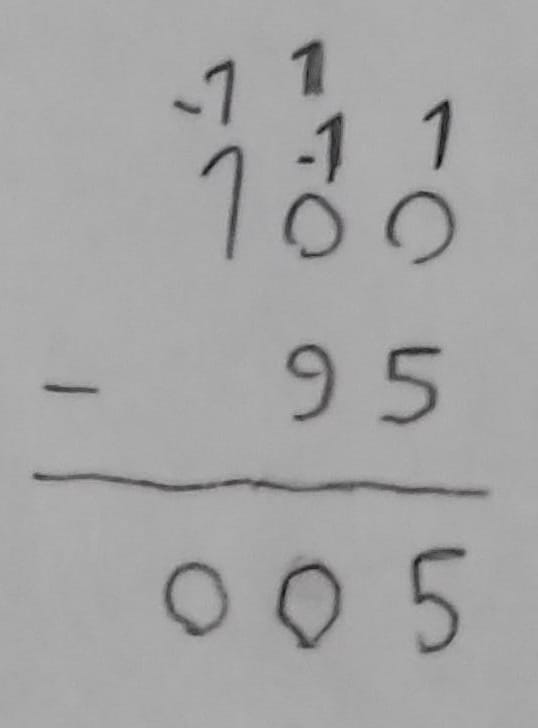 -1 1
-1 1
1 0 0
- 9 5
0 0 5